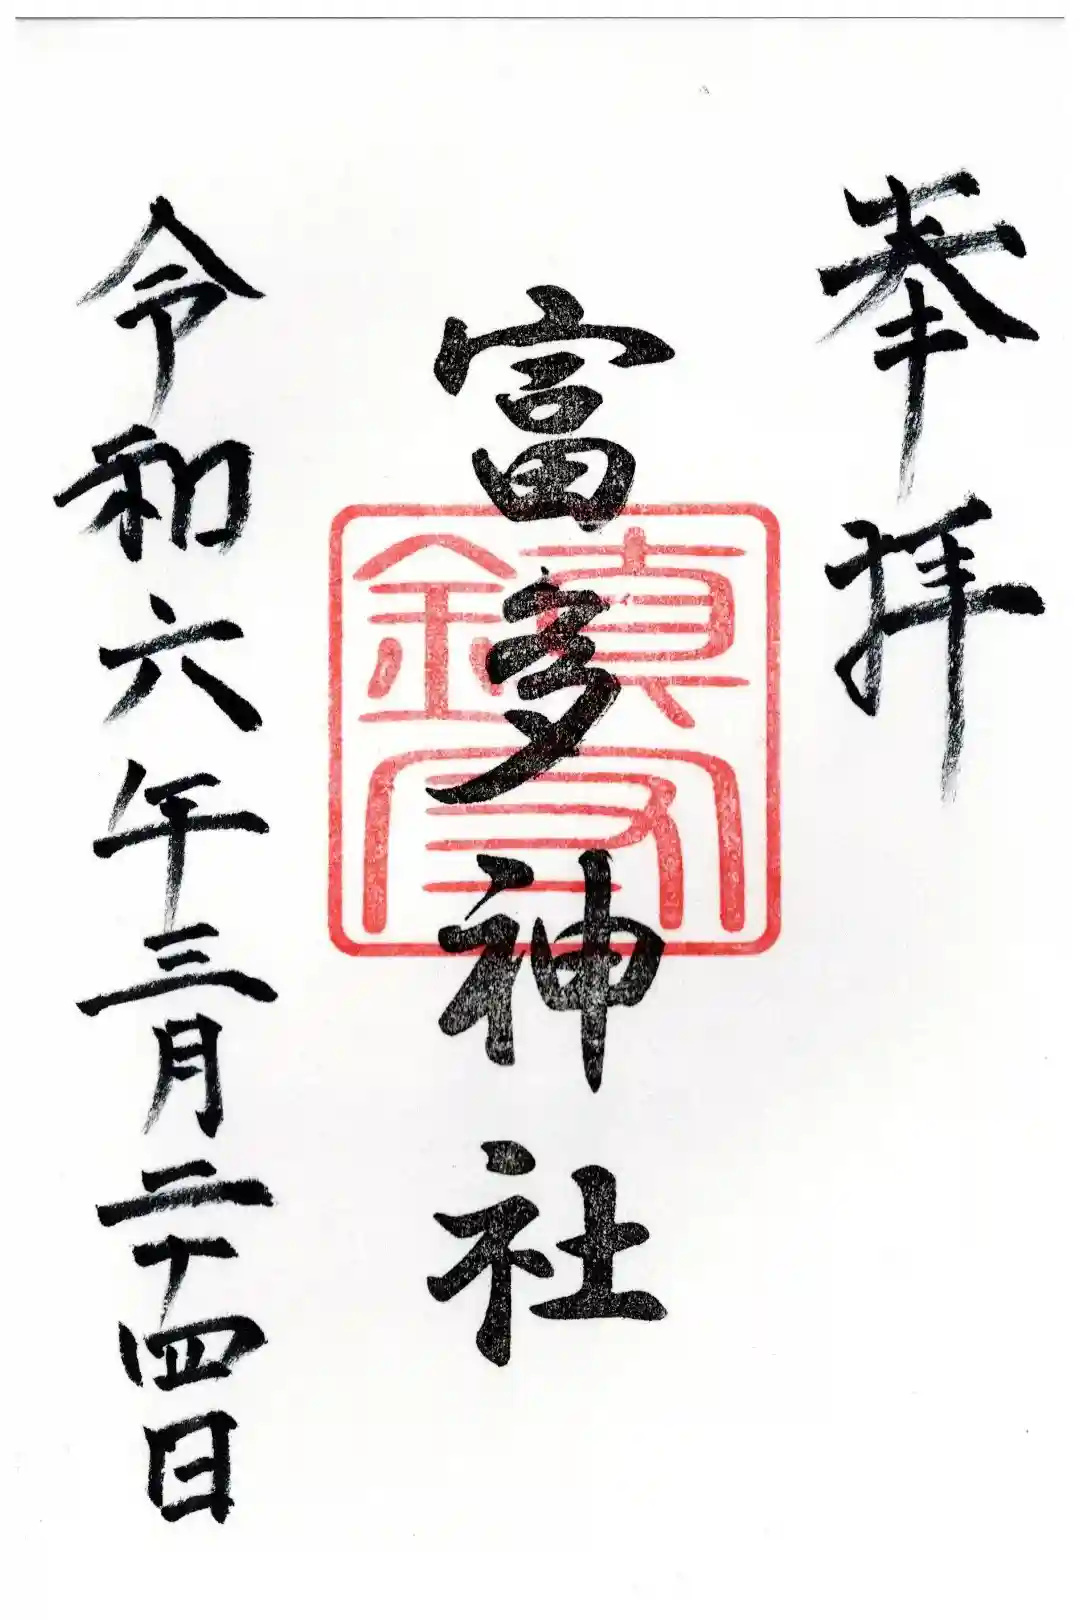 奉拝
富多神社
令和六年三月二十四日